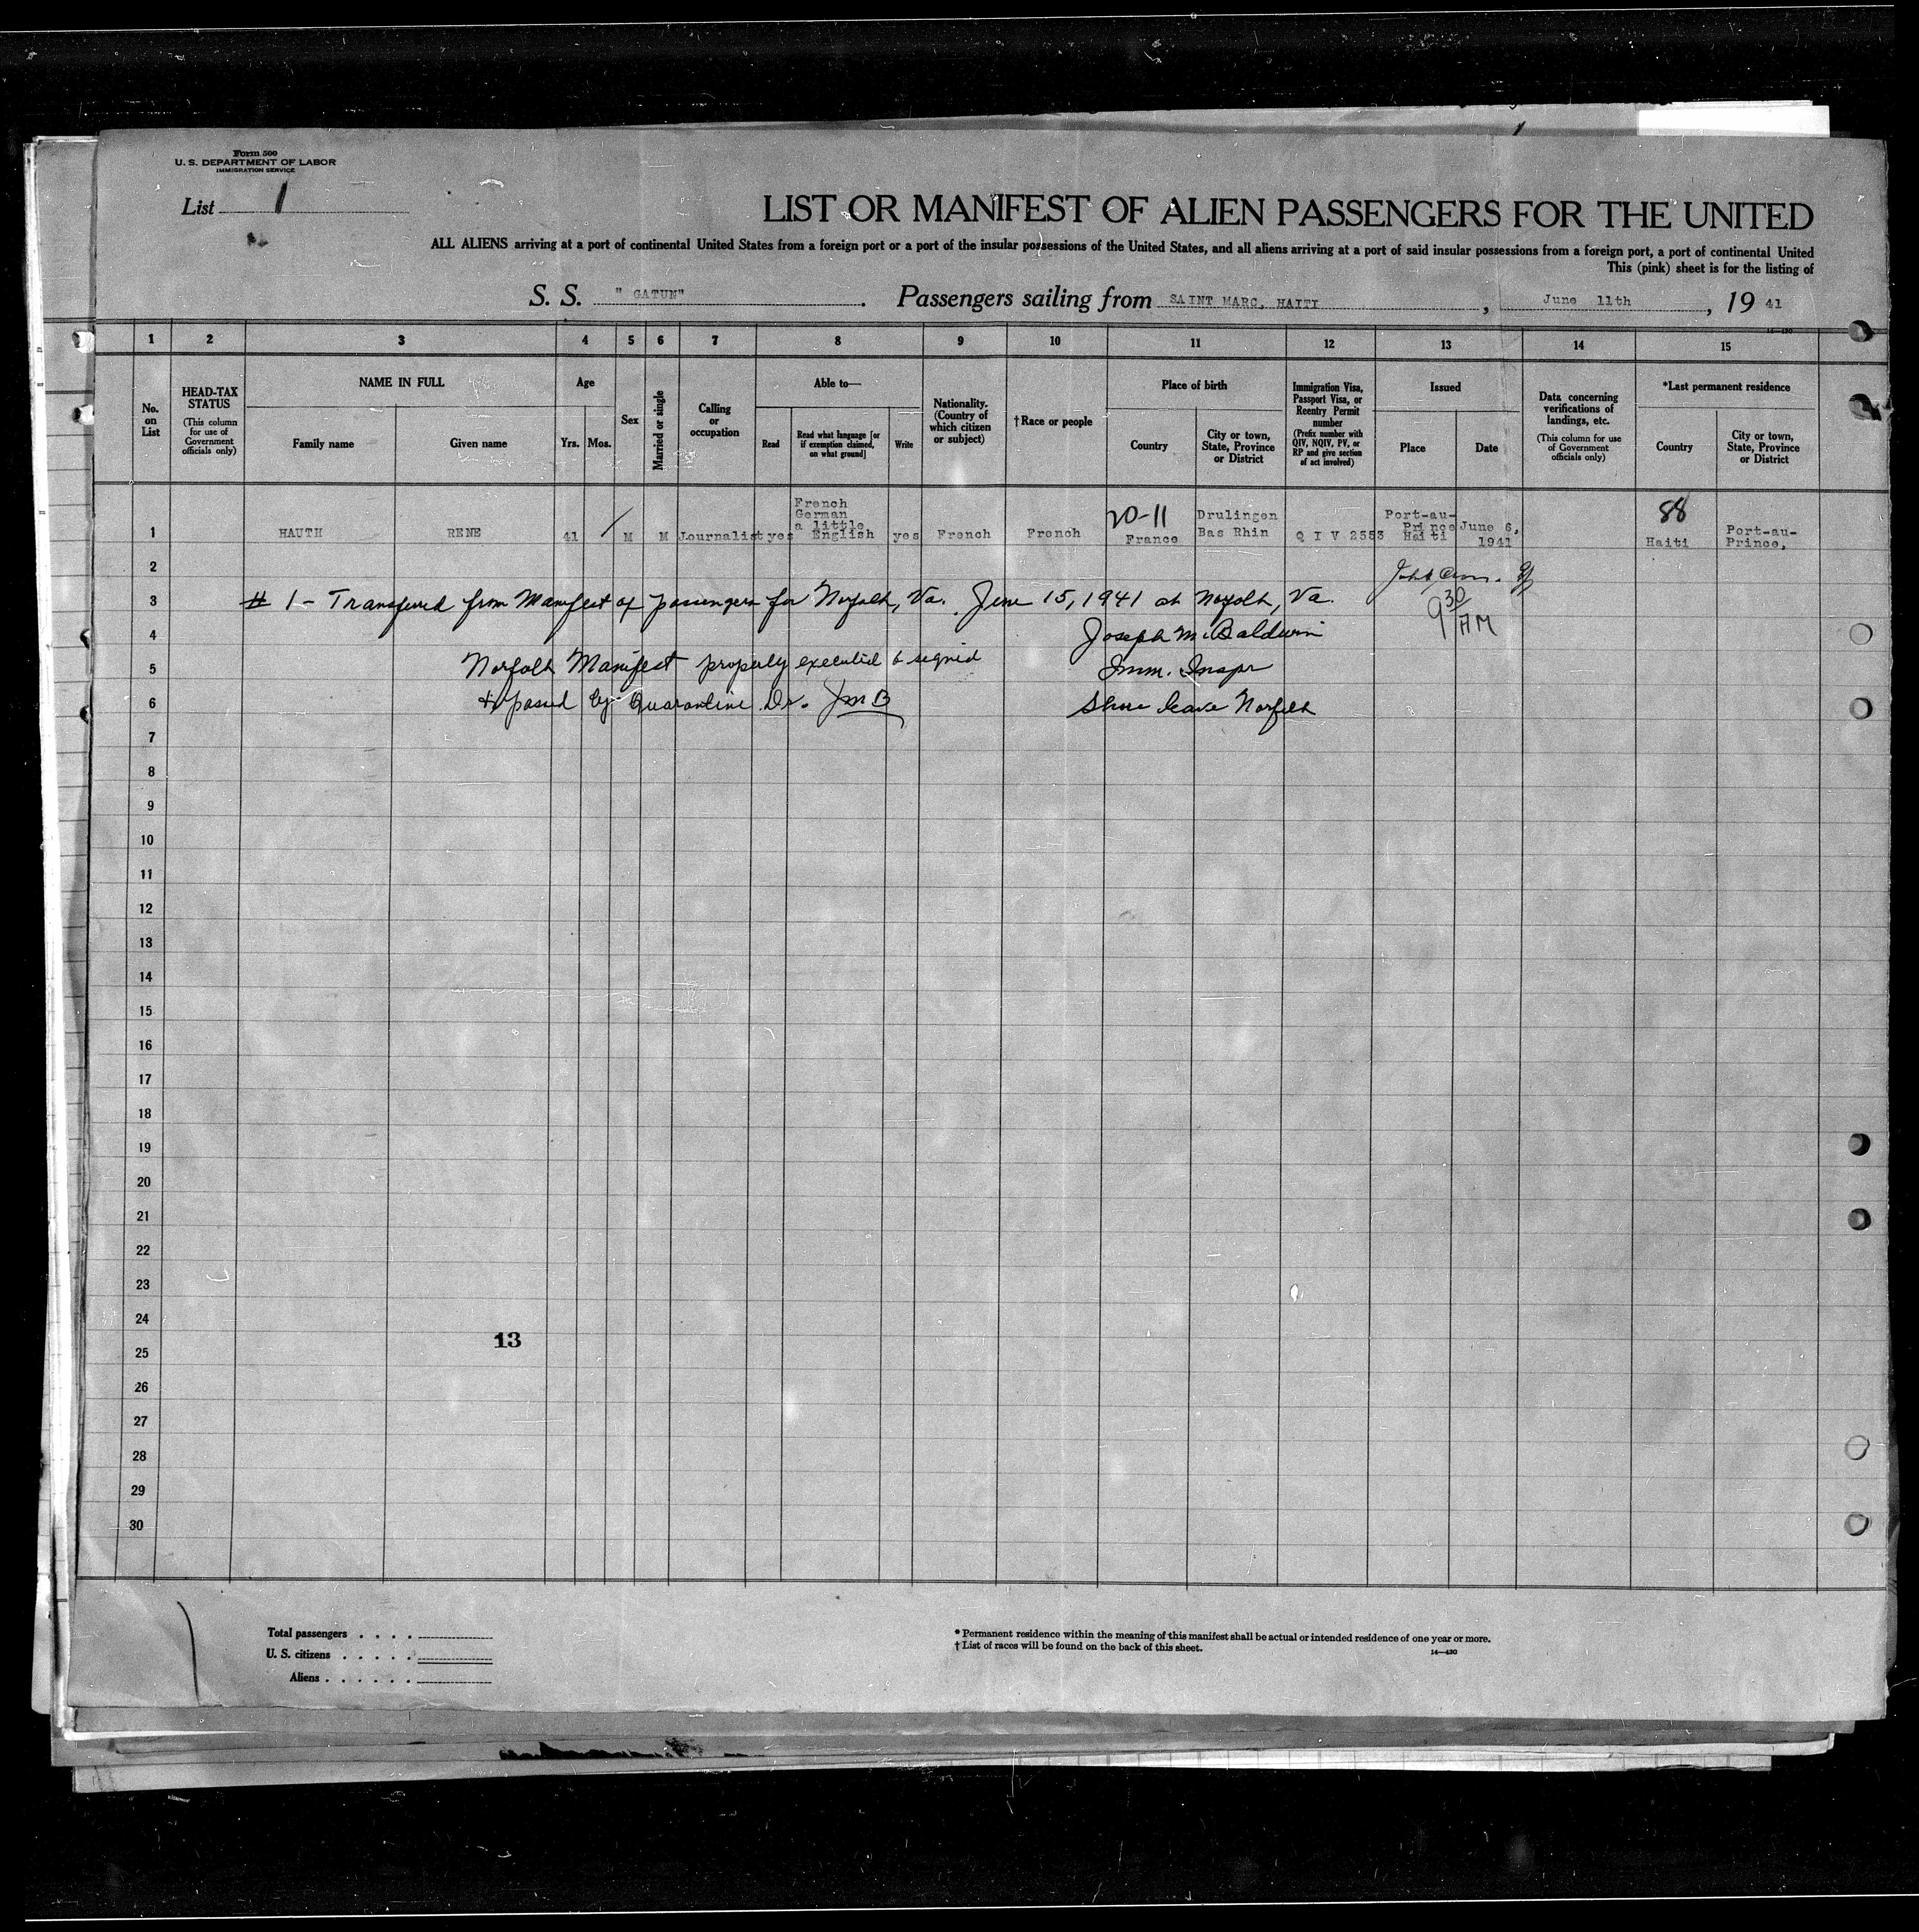 Form 500
U. S. DEPARTMENT OF LABOR
IMMIGRATION SERVICE
List 1
LIST OR MANIFEST OF ALIEN PASSENGERS FOR THE UNITED
ALL ALIENS arriving at a port of continental United States from a foreign port or a port of the insular possessions of the United States, and all aliens arriving at a port of said insular possessions from a foreign port, a port of continental United
This (pink) sheet is for the listing of
S. S. " GATUN" . Passengers sailing from SAINT MARC, HAITI , June 11th , 19 41
14—430
1 2 3 4 5 6 7 8 9 10 11 12 13 14 15
No. on List
HEAD-TAX STATUS
(This column for use of Government officials only)
NAME IN FULL
Family name
Given name
Age
Yrs.
Mos.
Sex
Married or single
Calling or occupation
Able to—
Read
Read what language [or if exemption claimed, on what ground]
Write
Nationality. (Country of which citizen or subject)
†Race or people
Place of birth
Country
City or town, State, Province or District
Immigration Visa, Passport Visa, or Reentry Permit number
(Prefix number with QIV, NQIV, PV, or RP and give section of act involved)
Issued
Place
Date
Data concerning verifications of landings, etc.
(This column for use of Government officials only)
*Last permanent residence
Country
City or town, State, Province or District
1 HAUTH RENE 41 M M Journalist yes French German a little English yes French French 20-11 France Drulingen Bas Rhin Q I V 2553 Port-au-Prince Haiti June 6, 1941 88 Haiti Port-au-Prince,
2
3 # 1 - Transferred from Manifest of passengers for Norfolk, Va. June 15, 1941 at Norfolk, Va. 9 30 AM
4 Joseph M. Baldwin
5 Norfolk Manifest properly executed & signed Imm. Inspr
6 & passed by Quarantine Dr. JMB Shore leave Norfolk
7
8
9
10
11
12
13
14
15
16
17
18
19
20
21
22
23
24
13
25
26
27
28
29
30
Total passengers . . . .
U. S. citizens . . . . .
Aliens . . . . . .
* Permanent residence within the meaning of this manifest shall be actual or intended residence of one year or more.
† List of races will be found on the back of this sheet.
14—430